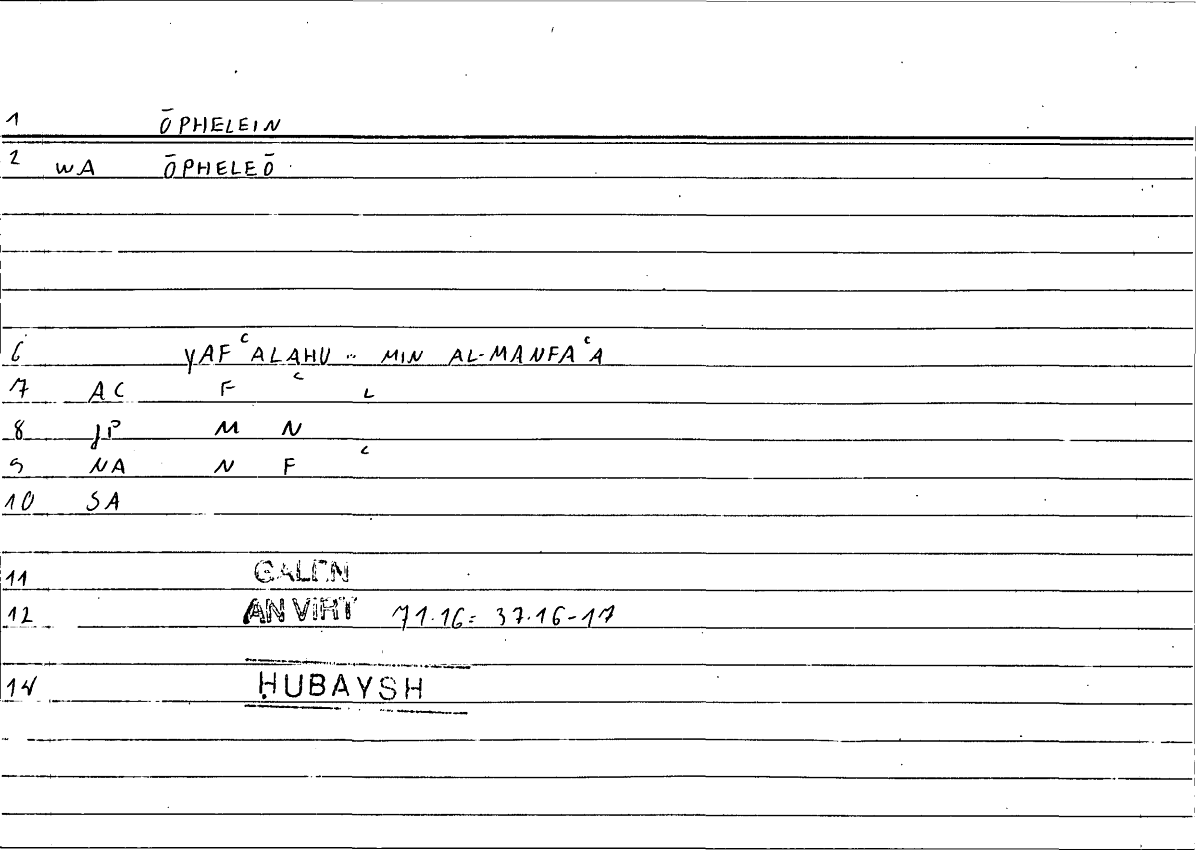 1 ŌPHELEIN
2 WA ŌPHELEŌ
6 YAFᶜALAHU .. MIN AL-MANFAᶜA
7 AC F ᶜ L
8 JP M N
9 NA N F ᶜ
10 SA
11 GALEN
12 AN VIRT 71.16 = 37.16-17
14 ḤUBAYSH